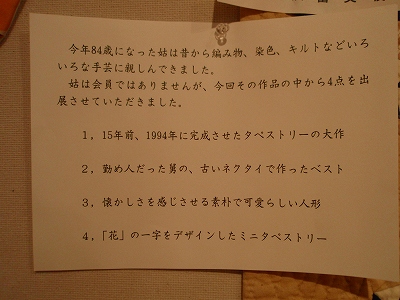 今年84歳になった姑は昔から編み物、染色、キルトなどいろ
いろな手芸に親しんできました。
姑は会員ではありませんが、今回その作品の中から4点を出
展させていただきました。
1，15年前、1994年に完成させたタペストリーの大作
2，勤め人だった舅の、古いネクタイで作ったベスト
3，懐かしさを感じさせる素朴で可愛らしい人形
4，「花」の一字をデザインしたミニタペストリー